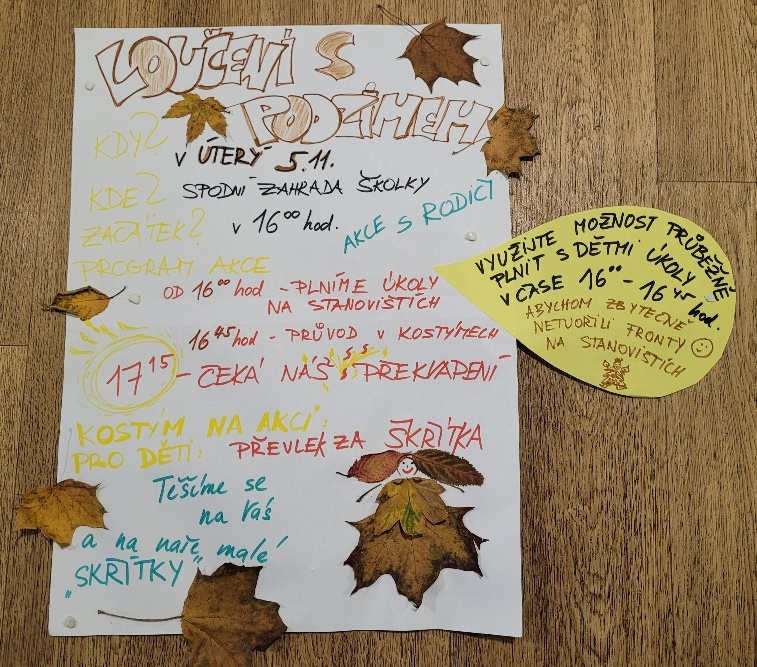 LOUČENÍ S
PODZIMEM
KDY?
V ÚTERÝ 5.11.
KDE? SPODNÍ ZAHRADA ŠKOLKY
ZAČÁTEK? V 16⁰⁰ hod.
AKCE S RODIČI
PROGRAM AKCE
OD 16⁰⁰ hod - PLNÍME ÚKOLY
NA STANOVIŠTÍCH
16⁴⁵ hod - PRŮVOD V KOSTÝMECH
17¹⁵ - ČEKÁ NÁS PŘEKVAPENÍ
KOSTÝM NA AKCI:
PRO DĚTI: PŘEVLEK ZA SKŘÍTKA
Těšíme se
na Vás
a na naše malé
„SKŘÍTKY"
VYUŽIJTE MOŽNOST PRŮBĚŽNĚ
PLNIT S DĚTMI ÚKOLY
V ČASE 16⁰⁰ - 16⁴⁵ hod.
ABYCHOM ZBYTEČNĚ
NETVOŘILI FRONTY
NA STANOVIŠTÍCH